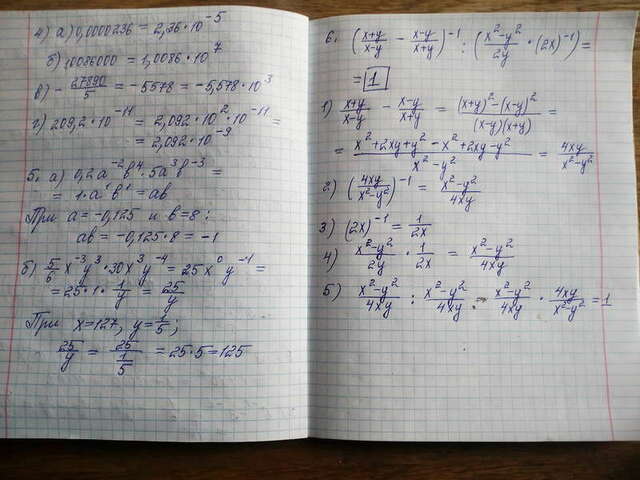 4) а) 0,0000236 = 2,36·10⁻⁵
б) 10086000 = 1,0086·10⁷
в) -27890/5 = -5578 = -5,578·10³
г) 209,2·10⁻¹¹ = 2,092·10²·10⁻¹¹ =
= 2,092·10⁻⁹
5. а) 0,2a⁻²b⁴·5a³b⁻³ =
= 1·a¹b¹ = ab
При a = -0,125 и b = 8:
ab = -0,125·8 = -1
б) 5/6 x⁻³y³·30x³y⁻⁴ = 25x⁰y⁻¹ =
= 25·1·1/y = 25/y
При x = 127, y = 1/5;
25/y = 25/(1/5) = 25·5 = 125
6. ((x+y)/(x-y) - (x-y)/(x+y))⁻¹ : ((x²-y²)/2y · (2x)⁻¹) =
= 1
1) (x+y)/(x-y) - (x-y)/(x+y) = ((x+y)²-(x-y)²)/((x-y)(x+y)) =
= (x²+2xy+y²-x²+2xy-y²)/(x²-y²) = 4xy/(x²-y²)
2) (4xy/(x²-y²))⁻¹ = (x²-y²)/4xy
3) (2x)⁻¹ = 1/2x
4) (x²-y²)/2y · 1/2x = (x²-y²)/4xy
5) (x²-y²)/4xy : (x²-y²)/4xy = (x²-y²)/4xy · 4xy/(x²-y²) = 1